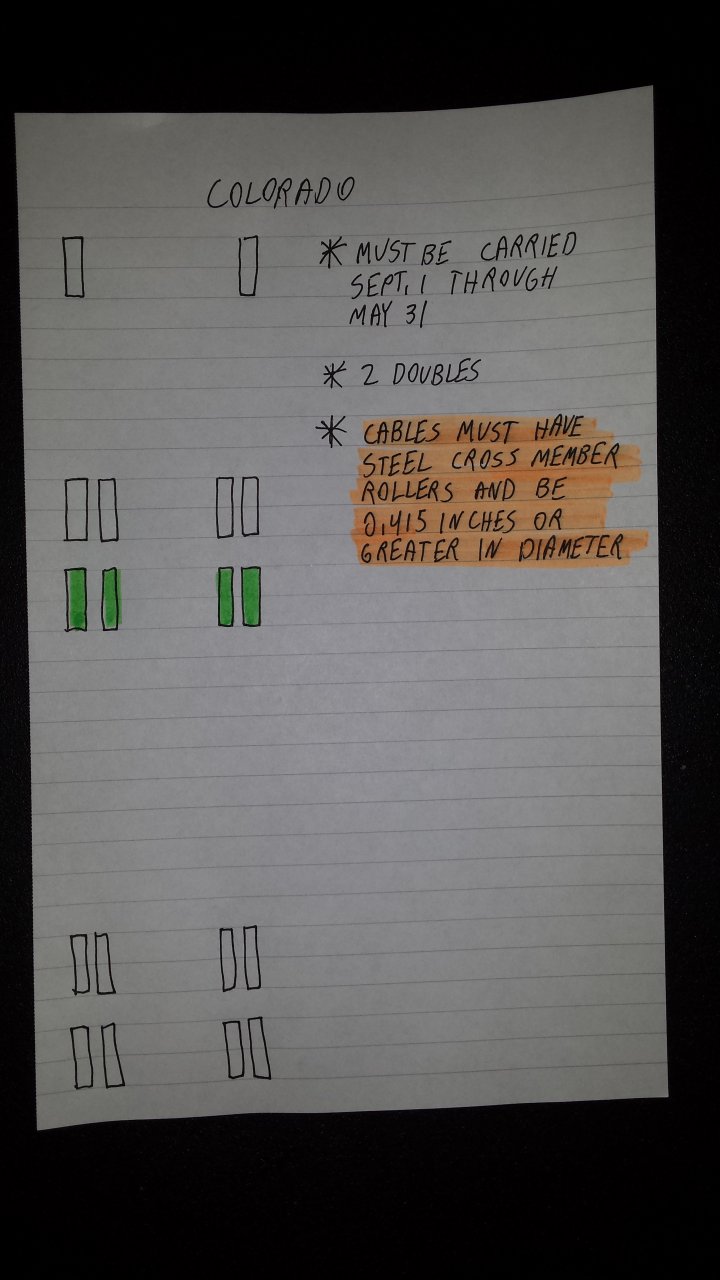 COLORADO
* MUST BE CARRIED
SEPT. 1 THROUGH
MAY 31
* 2 DOUBLES
* CABLES MUST HAVE
STEEL CROSS MEMBER
ROLLERS AND BE
0.415 INCHES OR
GREATER IN DIAMETER